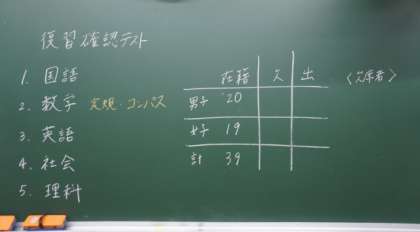 復習確認テスト
1. 国語
2. 数学 定規・コンパス
3. 英語
4. 社会
5. 理科
在籍 欠 出 〈欠席者〉
男子 20
女子 19
計 39